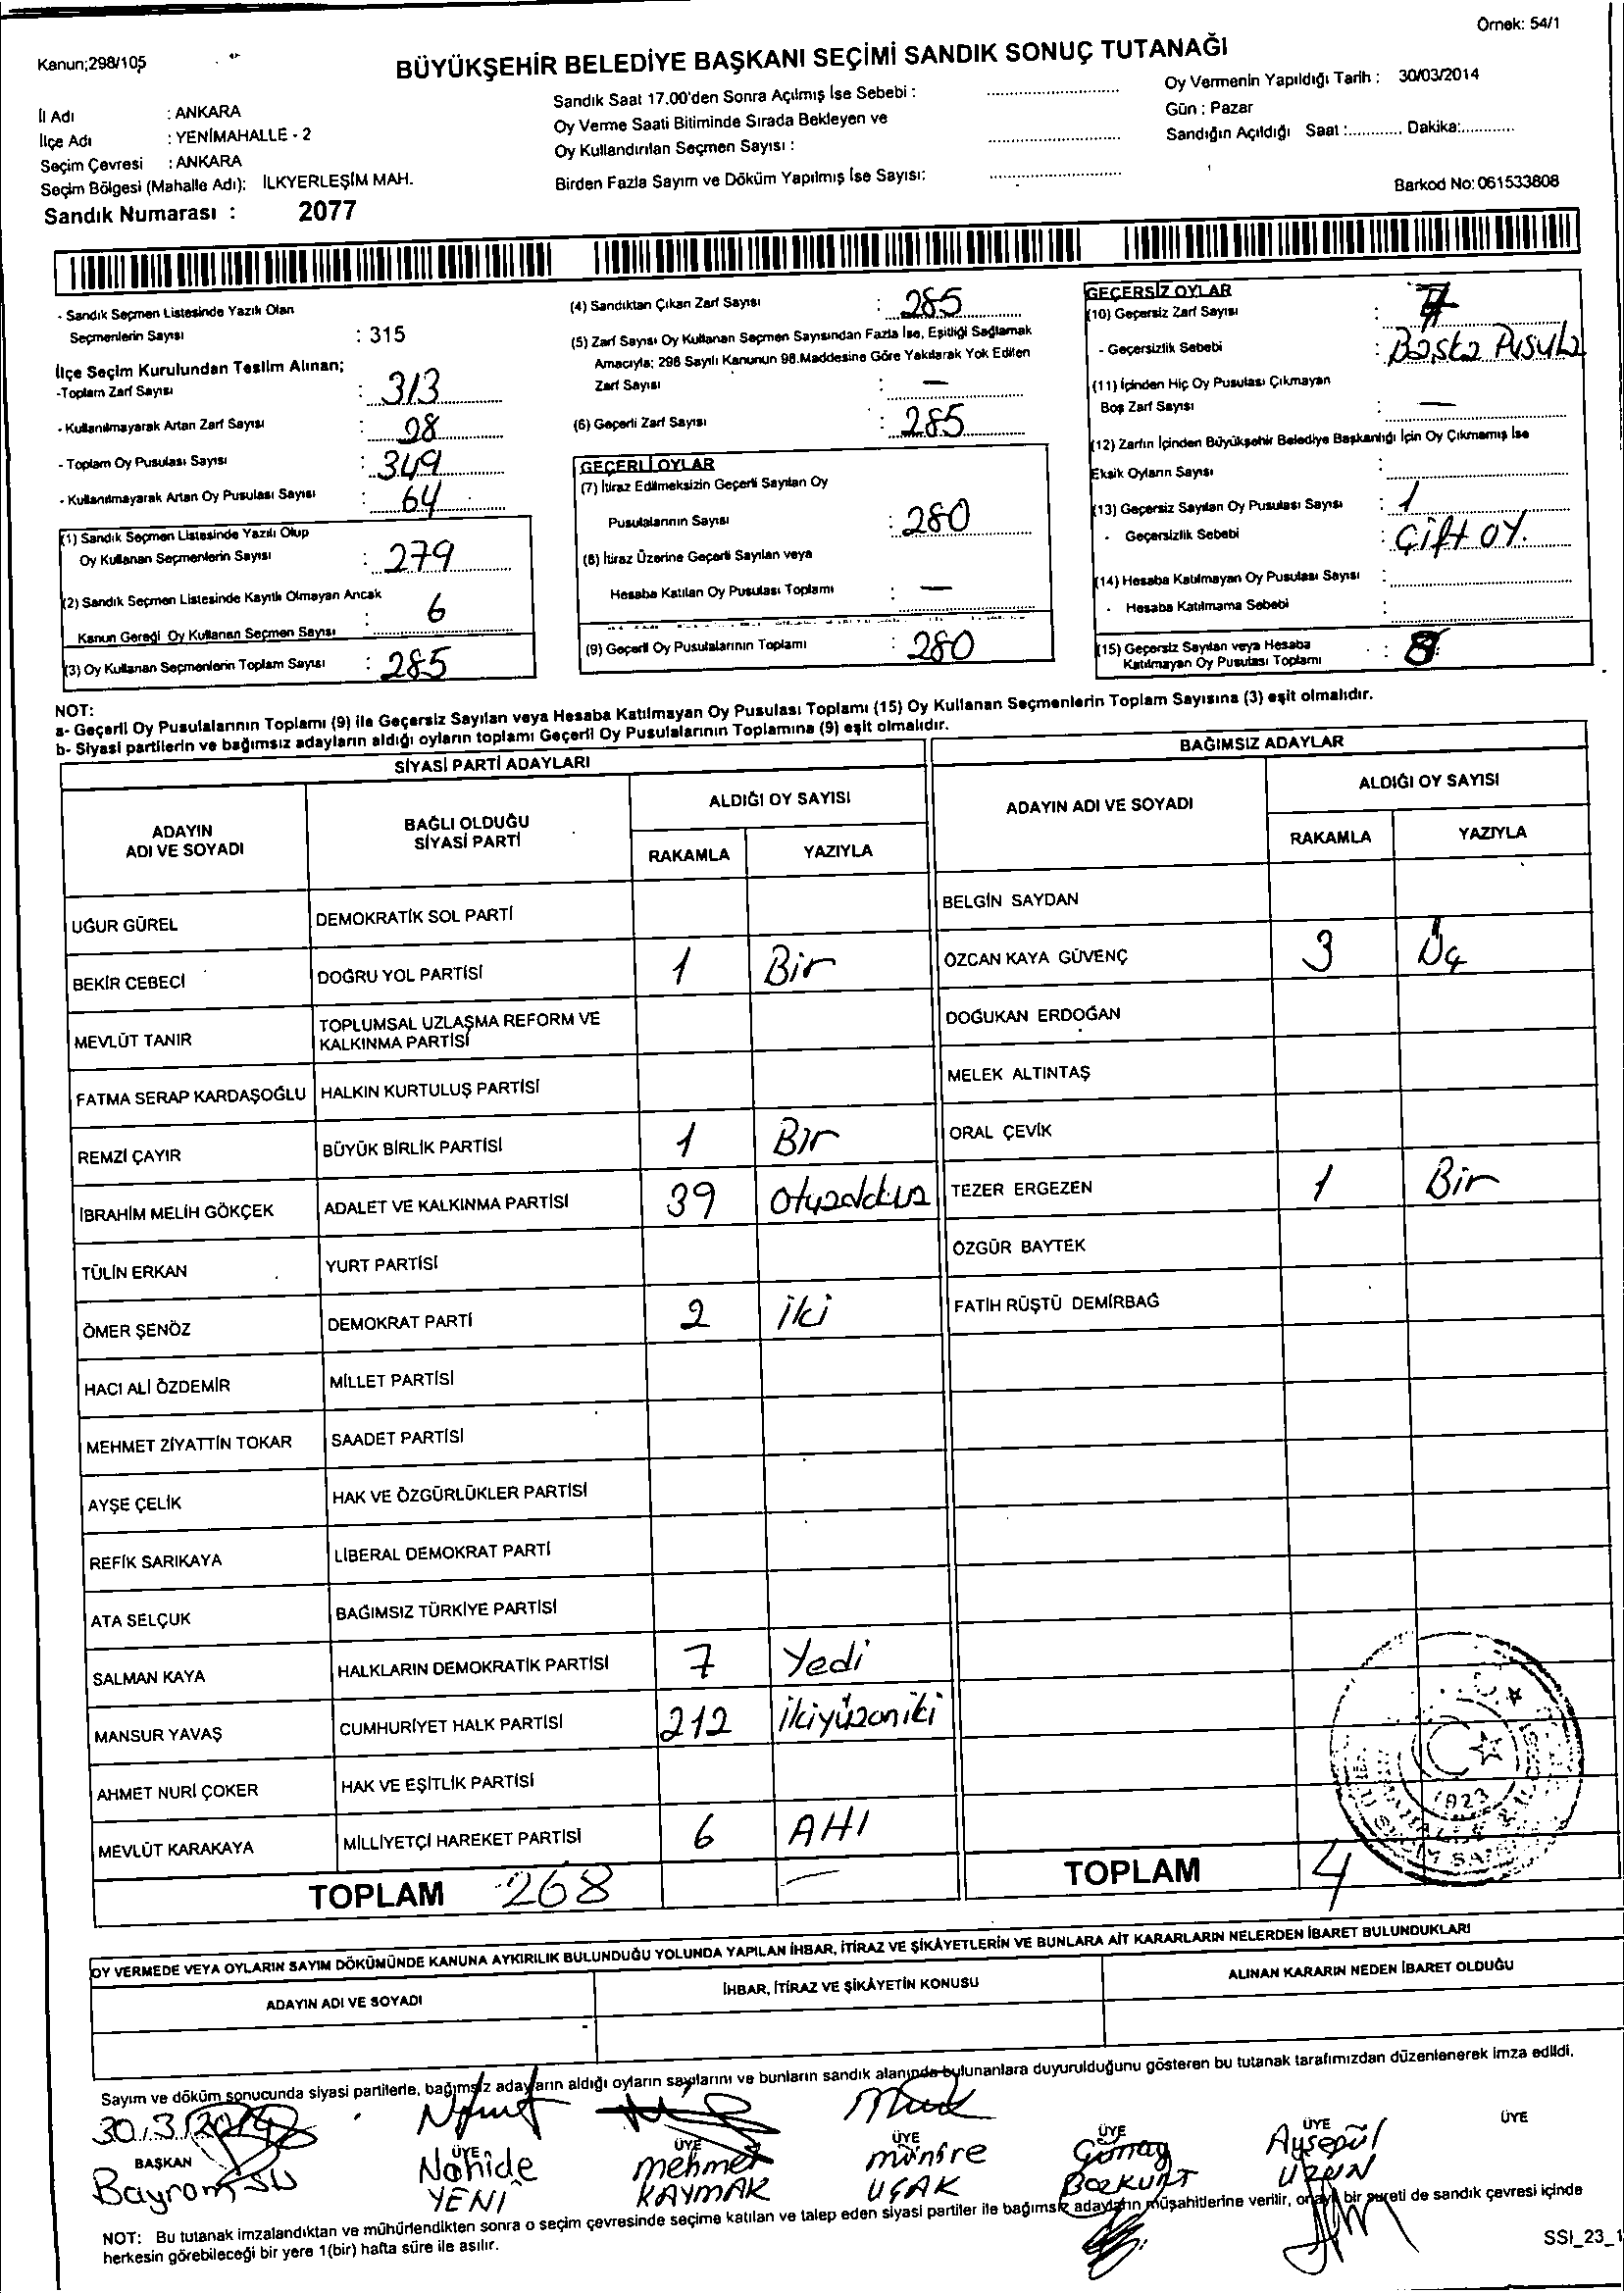 Örnek: 54/1
Kanun;298/105
BÜYÜKŞEHİR BELEDİYE BAŞKANI SEÇİMİ SANDIK SONUÇ TUTANAĞI
İl Adı : ANKARA
İlçe Adı : YENİMAHALLE - 2
Seçim Çevresi : ANKARA
Seçim Bölgesi (Mahalle Adı): İLKYERLEŞİM MAH.
Sandık Numarası : 2077
Sandık Saat 17.00'den Sonra Açılmış İse Sebebi :
Oy Verme Saati Bitiminde Sırada Bekleyen ve
Oy Kullandırılan Seçmen Sayısı :
Birden Fazla Sayım ve Döküm Yapılmış İse Sayısı:
Oy Vermenin Yapıldığı Tarih : 30/03/2014
Gün : Pazar
Sandığın Açıldığı Saat :............ Dakika:............
Barkod No: 061533808
- Sandık Seçmen Listesinde Yazılı Olan
Seçmenlerin Sayısı : 315
İlçe Seçim Kurulundan Teslim Alınan;
-Toplam Zarf Sayısı : 313
- Kullanılmayarak Artan Zarf Sayısı : 28
- Toplam Oy Pusulası Sayısı : 349
- Kullanılmayarak Artan Oy Pusulası Sayısı : 64
(1) Sandık Seçmen Listesinde Yazılı Olup
Oy Kullanan Seçmenlerin Sayısı : 279
(2) Sandık Seçmen Listesinde Kayıtlı Olmayan Ancak
Kanun Gereği Oy Kullanan Seçmen Sayısı : 6
(3) Oy Kullanan Seçmenlerin Toplam Sayısı : 285
(4) Sandıktan Çıkan Zarf Sayısı : 285
(5) Zarf Sayısı Oy Kullanan Seçmen Sayısından Fazla İse, Eşitliği Sağlamak
Amacıyla; 298 Sayılı Kanunun 98.Maddesine Göre Yakılarak Yok Edilen
Zarf Sayısı : —
(6) Geçerli Zarf Sayısı : 285
GEÇERLİ OYLAR
(7) İtiraz Edilmeksizin Geçerli Sayılan Oy
Pusulalarının Sayısı : 280
(8) İtiraz Üzerine Geçerli Sayılan veya
Hesaba Katılan Oy Pusulası Toplamı : —
(9) Geçerli Oy Pusulalarının Toplamı : 280
GEÇERSİZ OYLAR
(10) Geçersiz Zarf Sayısı : 7
- Geçersizlik Sebebi : Başka Pusula
(11) İçinden Hiç Oy Pusulası Çıkmayan
Boş Zarf Sayısı : —
(12) Zarfın İçinden Büyükşehir Belediye Başkanlığı İçin Oy Çıkmamış İse
Eksik Oyların Sayısı :
(13) Geçersiz Sayılan Oy Pusulası Sayısı : 1
- Geçersizlik Sebebi : Çift oy.
(14) Hesaba Katılmayan Oy Pusulası Sayısı :
- Hesaba Katılmama Sebebi :
(15) Geçersiz Sayılan veya Hesaba
Katılmayan Oy Pusulası Toplamı : 8
NOT:
a- Geçerli Oy Pusulalarının Toplamı (9) ile Geçersiz Sayılan veya Hesaba Katılmayan Oy Pusulası Toplamı (15) Oy Kullanan Seçmenlerin Toplam Sayısına (3) eşit olmalıdır.
b- Siyasi partilerin ve bağımsız adayların aldığı oyların toplamı Geçerli Oy Pusulalarının Toplamına (9) eşit olmalıdır.
SİYASİ PARTİ ADAYLARI
ADAYIN ADI VE SOYADI
BAĞLI OLDUĞU SİYASİ PARTİ
ALDIĞI OY SAYISI
RAKAMLA YAZIYLA
UĞUR GÜREL DEMOKRATİK SOL PARTİ
BEKİR CEBECİ DOĞRU YOL PARTİSİ 1 Bir
MEVLÜT TANIR TOPLUMSAL UZLAŞMA REFORM VE KALKINMA PARTİSİ
FATMA SERAP KARDAŞOĞLU HALKIN KURTULUŞ PARTİSİ
REMZİ ÇAYIR BÜYÜK BİRLİK PARTİSİ 1 Bir
İBRAHİM MELİH GÖKÇEK ADALET VE KALKINMA PARTİSİ 39 otuzdokuz
TÜLİN ERKAN YURT PARTİSİ
ÖMER ŞENÖZ DEMOKRAT PARTİ 2 iki
HACI ALİ ÖZDEMİR MİLLET PARTİSİ
MEHMET ZİYATTİN TOKAR SAADET PARTİSİ
AYŞE ÇELİK HAK VE ÖZGÜRLÜKLER PARTİSİ
REFİK SARIKAYA LİBERAL DEMOKRAT PARTİ
ATA SELÇUK BAĞIMSIZ TÜRKİYE PARTİSİ
SALMAN KAYA HALKLARIN DEMOKRATİK PARTİSİ 7 Yedi
MANSUR YAVAŞ CUMHURİYET HALK PARTİSİ 212 ikiyüzoniki
AHMET NURİ ÇOKER HAK VE EŞİTLİK PARTİSİ
MEVLÜT KARAKAYA MİLLİYETÇİ HAREKET PARTİSİ 6 AHI
TOPLAM 268 —
BAĞIMSIZ ADAYLAR
ADAYIN ADI VE SOYADI
ALDIĞI OY SAYISI
RAKAMLA YAZIYLA
BELGİN SAYDAN
ÖZCAN KAYA GÜVENÇ 3 Üç
DOĞUKAN ERDOĞAN
MELEK ALTINTAŞ
ORAL ÇEVİK
TEZER ERGEZEN 1 Bir
ÖZGÜR BAYTEK
FATİH RÜŞTÜ DEMİRBAĞ
TOPLAM 4
OY VERMEDE VEYA OYLARIN SAYIM DÖKÜMÜNDE KANUNA AYKIRILIK BULUNDUĞU YOLUNDA YAPILAN İHBAR, İTİRAZ VE ŞİKÂYETLERİN VE BUNLARA AİT KARARLARIN NELERDEN İBARET BULUNDUKLARI
ADAYIN ADI VE SOYADI
İHBAR, İTİRAZ VE ŞİKÂYETİN KONUSU
ALINAN KARARIN NEDEN İBARET OLDUĞU
Sayım ve döküm sonucunda siyasi partilerle, bağımsız adayların aldığı oyların sayılarını ve bunların sandık alanında bulunanlara duyurulduğunu gösteren bu tutanak tarafımızdan düzenlenerek imza edildi.
30.3.2014
BAŞKAN ÜYE ÜYE ÜYE ÜYE ÜYE ÜYE
Bayram SU
Nahide YENİ
mehmet KAYMAK
münire UÇAK
Günay BOZKURT
Ayşegül UZUN
NOT: Bu tutanak imzalandıktan ve mühürlendikten sonra o seçim çevresinde seçime katılan ve talep eden siyasi partiler ile bağımsız adayların müşahitlerine verilir, onaylı bir sureti de sandık çevresi içinde
herkesin görebileceği bir yere 1(bir) hafta süre ile asılır.
SSI_23_1